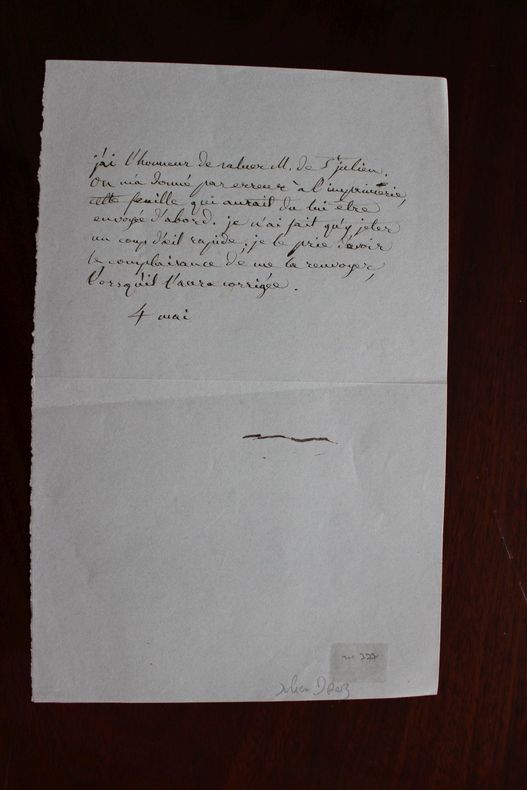 j'ai l'honneur de saluer M. de St julien.
on m'a donné par erreur à l'imprimerie,
cette feuille qui aurait du lui être
envoyée d'abord. je n'ai fait qu'y jeter
un coup d'œil rapide. je le prie d'avoir
la complaisance de me la renvoyer,
lorsqu'il l'aura corrigée.
4 mai